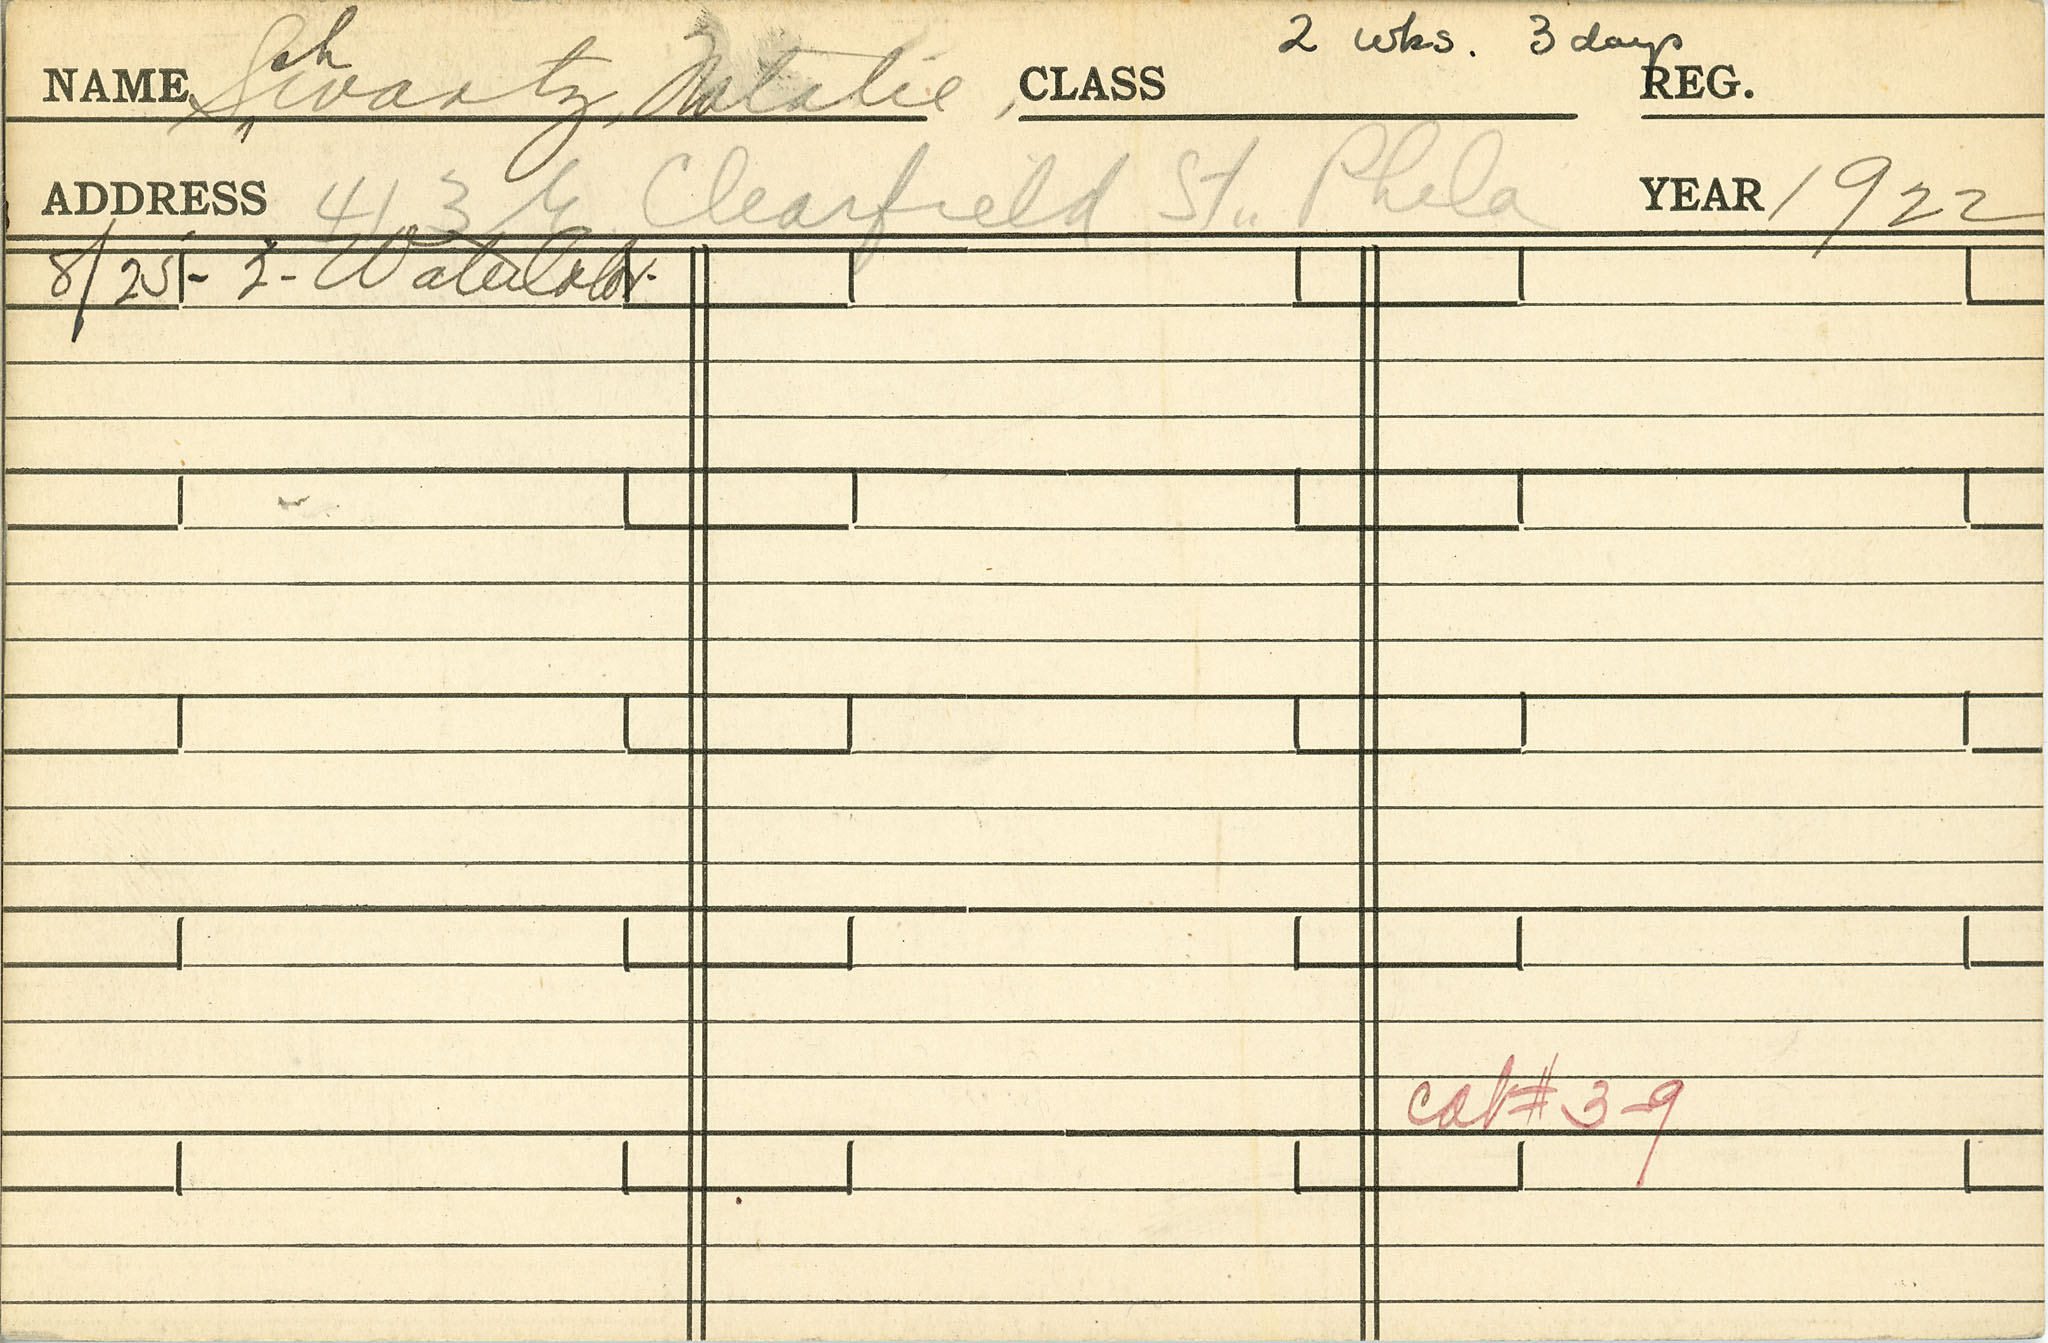 2 wks. 3 days
NAME Schwartz, Natalie, CLASS REG.
ADDRESS 413 E. Clearfield St., Phila YEAR 1922
8/25 - 2 - Watercolor -
cat # 3-9